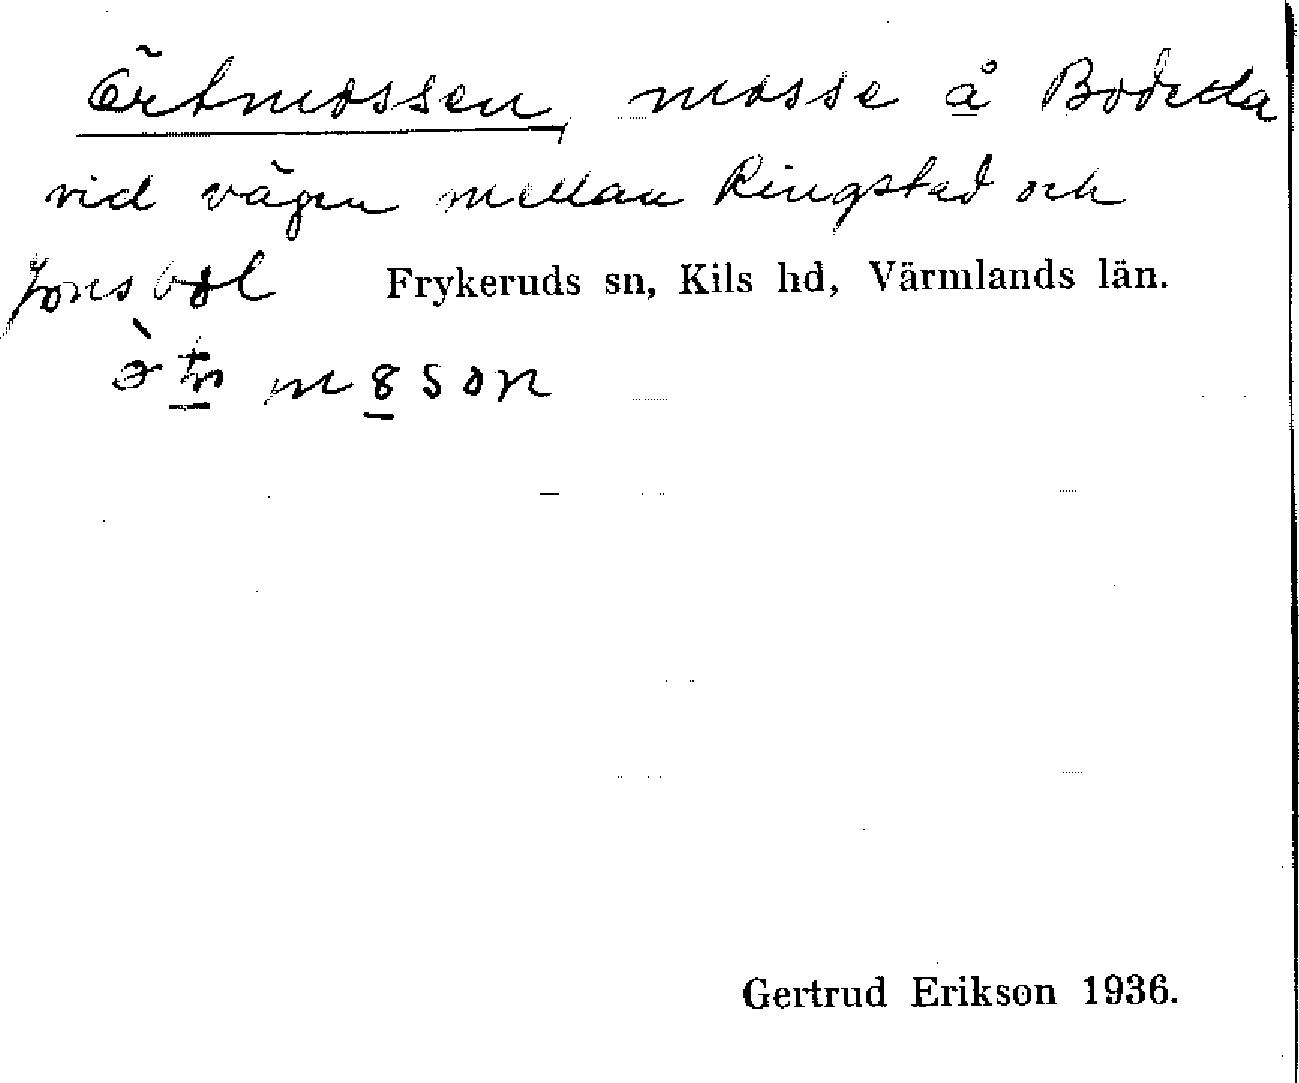 Örtmossen, mosse å Bodetta
vid vägen mellan Ringstad och
Jonsbol Frykeruds sn, Kils hd, Värmlands län.
Gertrud Erikson 1936.